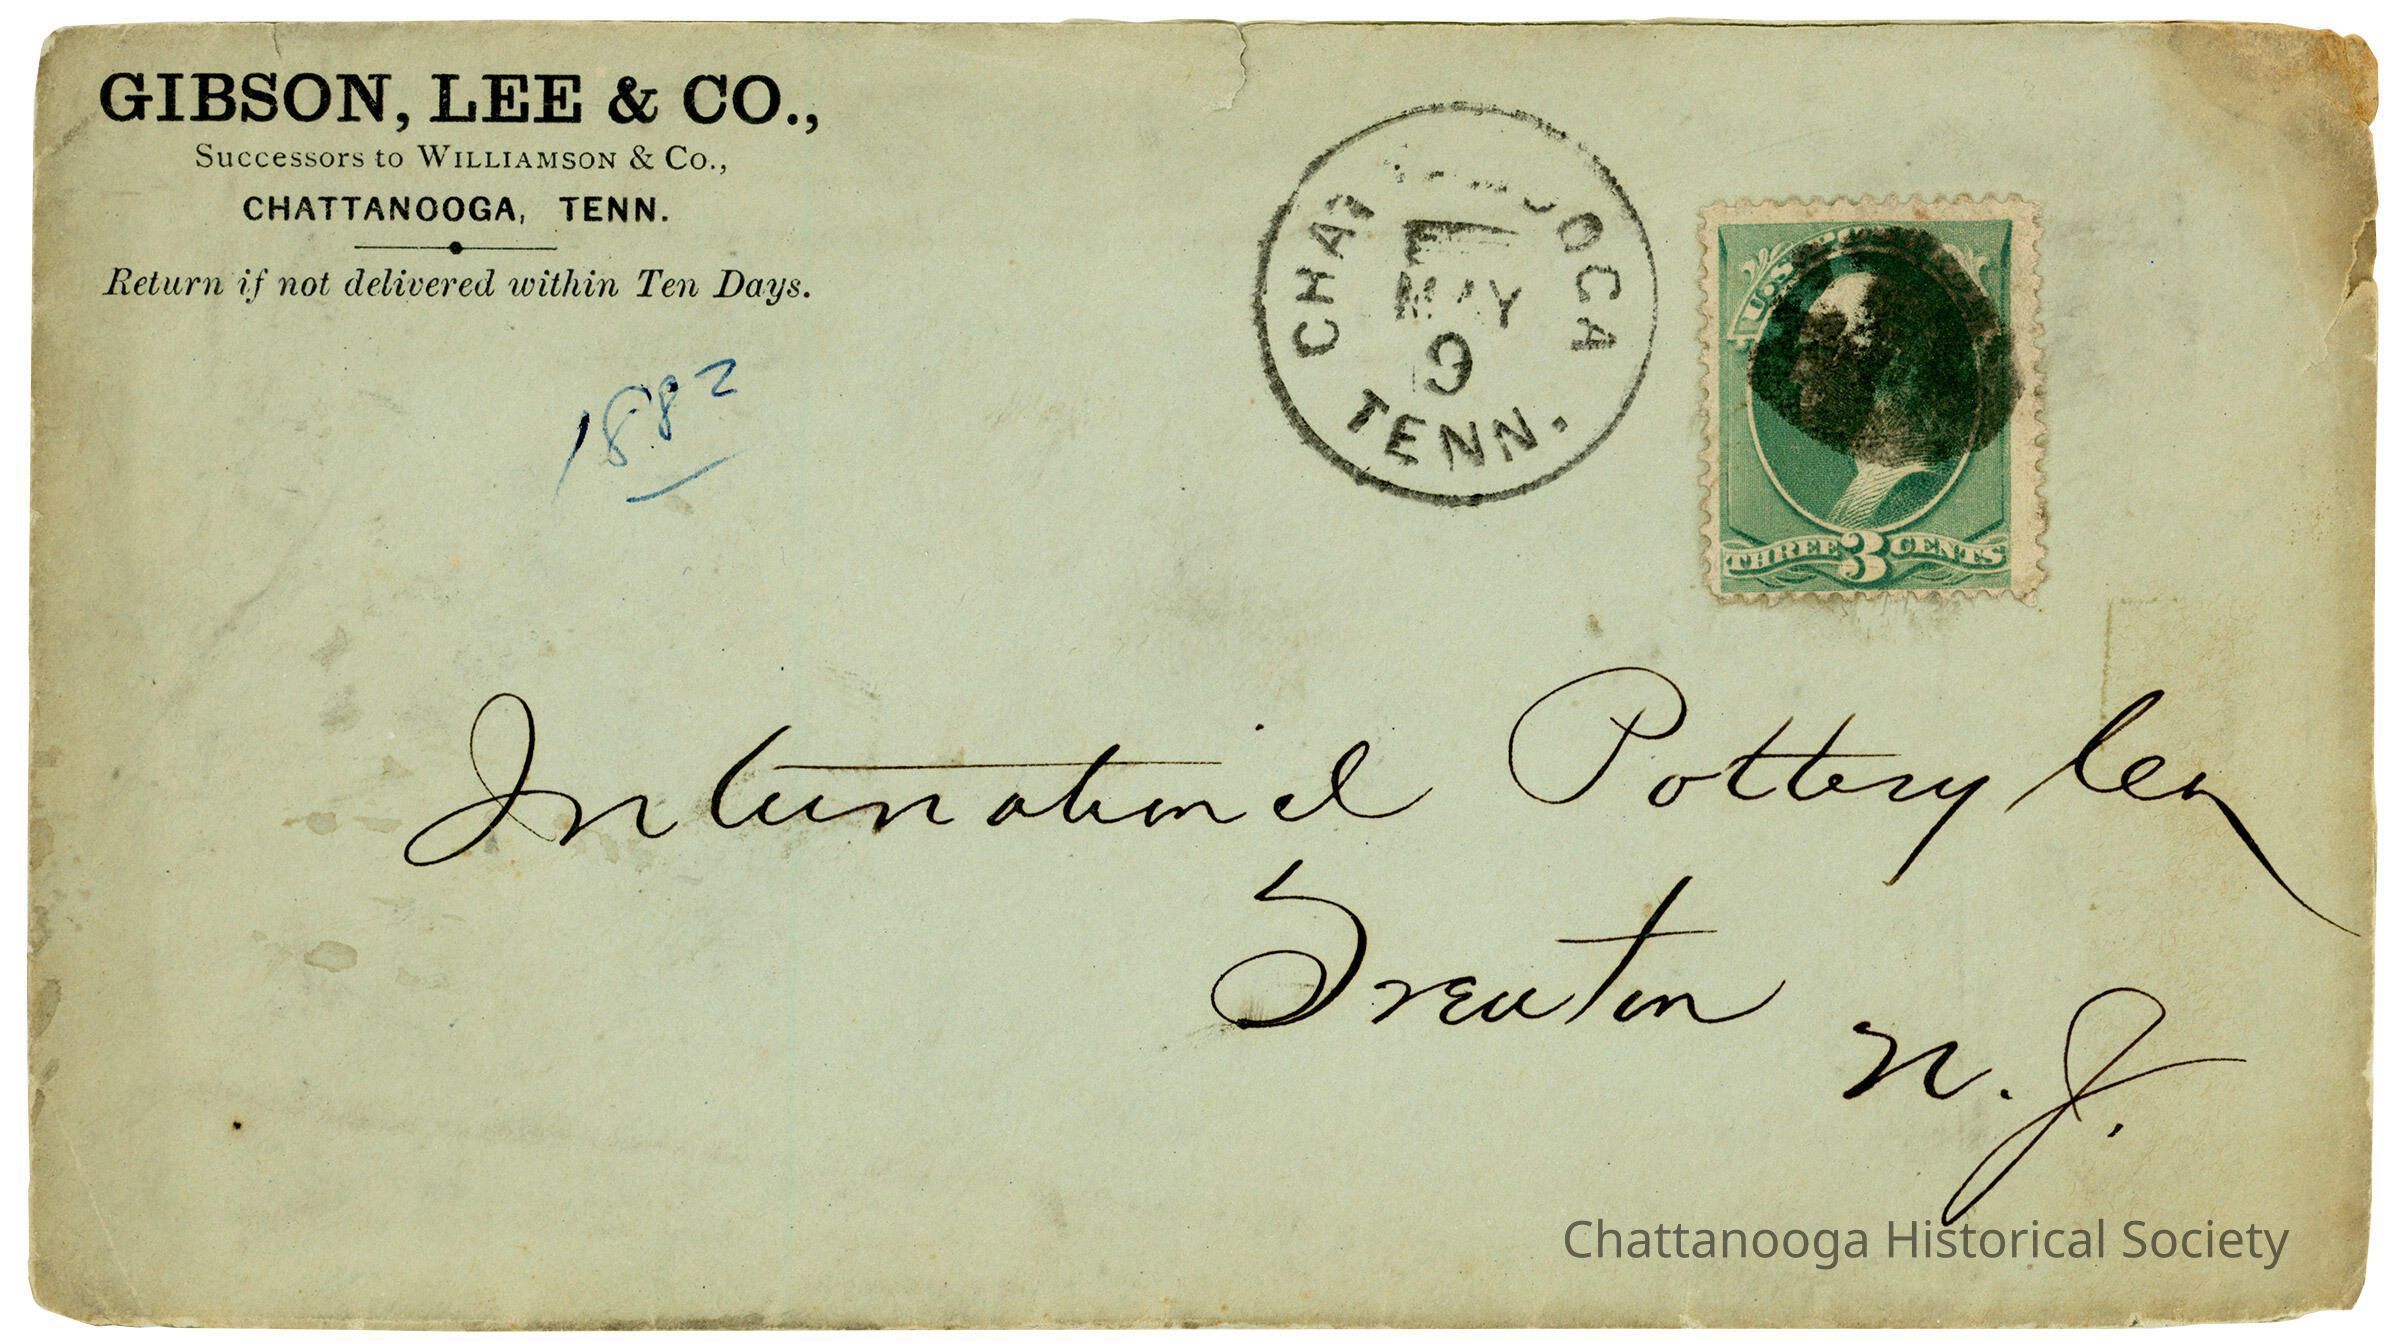 GIBSON, LEE & CO.,
Successors to WILLIAMSON & Co.,
CHATTANOOGA, TENN.
Return if not delivered within Ten Days.
1882
CHAT OOGA
MAY
9
TENN.
U.S. POSTAGE
THREE 3 CENTS
International Pottery Co
Trenton
N. J.
Chattanooga Historical Society